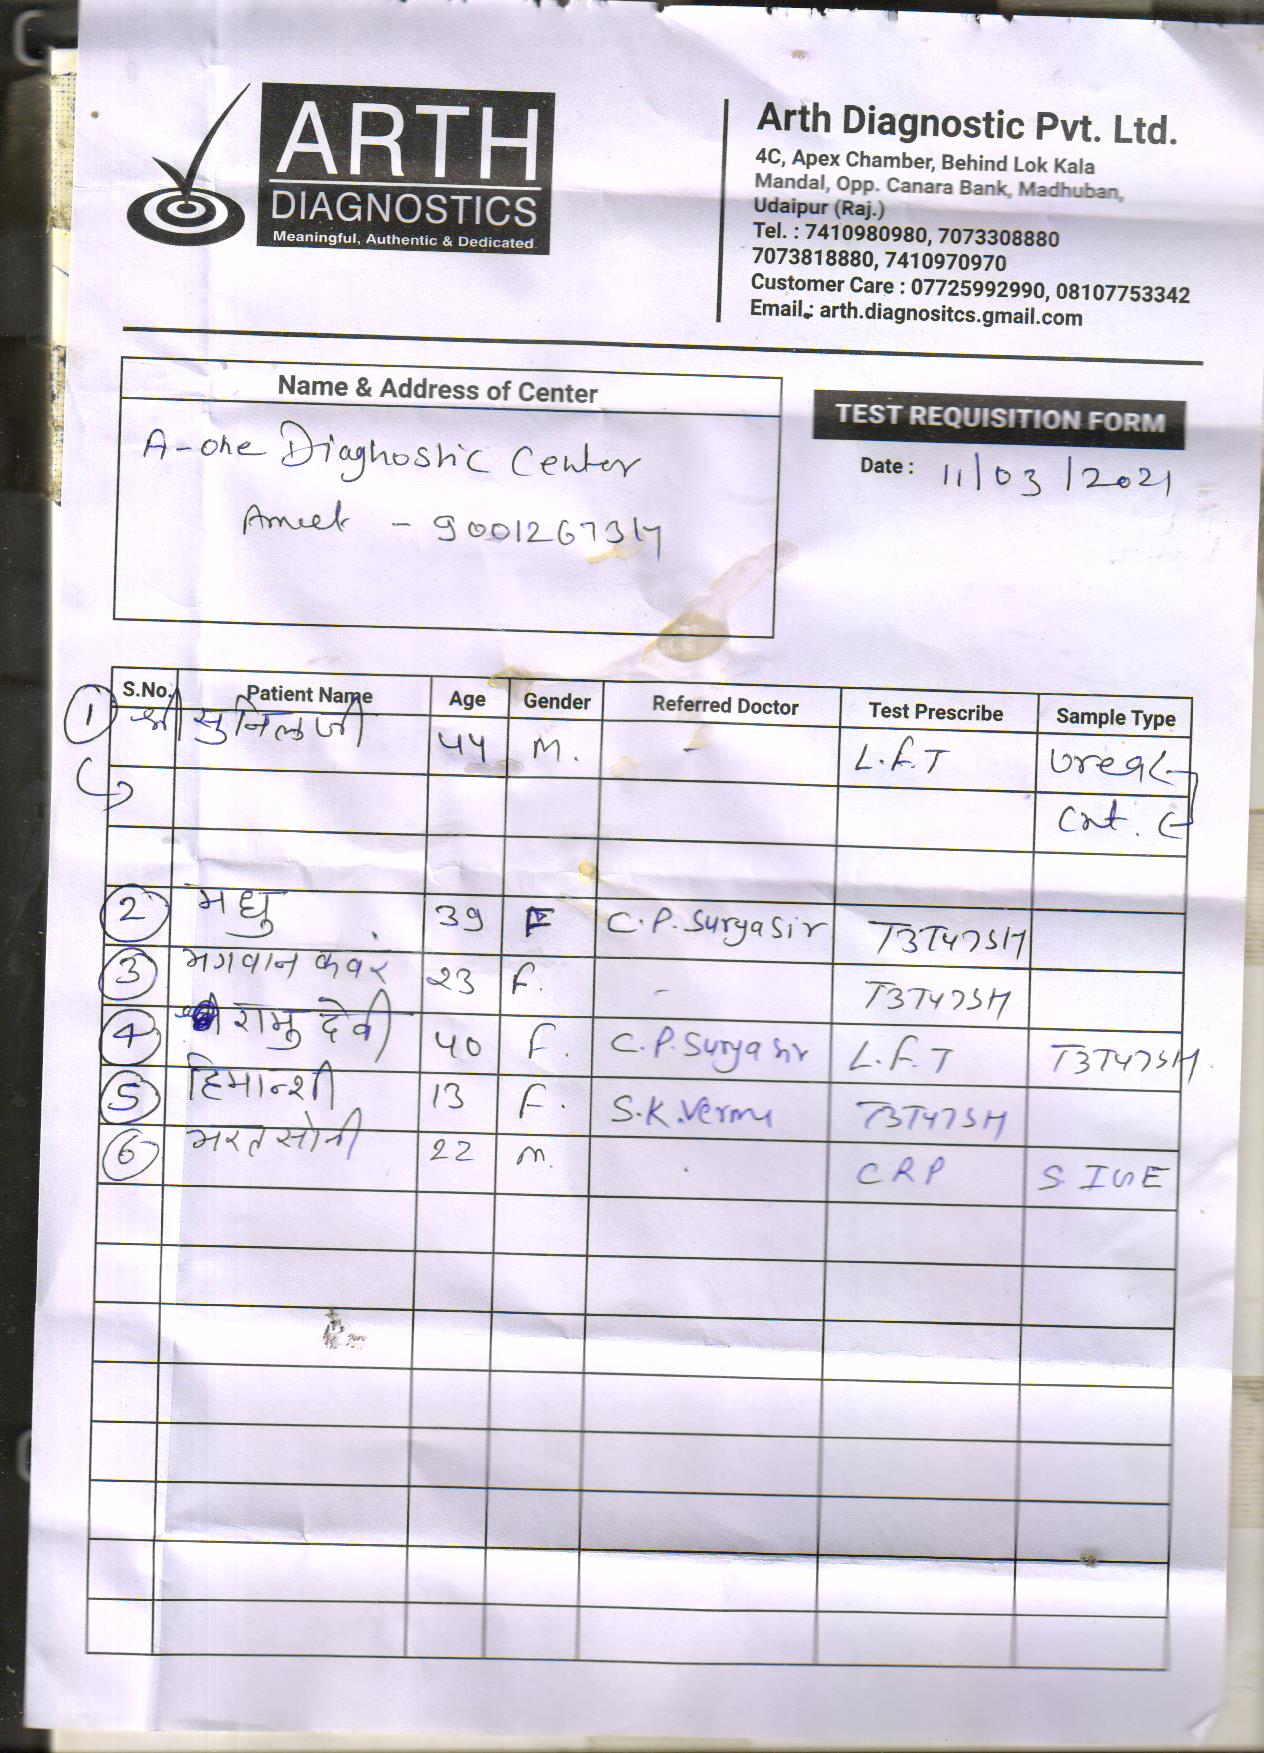 ARTH
DIAGNOSTICS
Meaningful, Authentic & Dedicated.
Arth Diagnostic Pvt. Ltd.
4C, Apex Chamber, Behind Lok Kala
Mandal, Opp. Canara Bank, Madhuban,
Udaipur (Raj.)
Tel. : 7410980980, 7073308880
7073818880, 7410970970
Customer Care : 07725992990, 08107753342
Email.: arth.diagnositcs.gmail.com
Name & Address of Center
A-one Diagnostic Center
Ameet - 9001267317
TEST REQUISITION FORM
Date : 11/03/2021
S.No. Patient Name Age Gender Referred Doctor Test Prescribe Sample Type
1 श्री सुनिल जी 44 M. - L.F.T Urea
Crt.
2 मधु 39 F C.P.Surya Sir T3T4TSH
3 भगवान कवर 23 F. - T3T4TSH
4 रामु देवी 40 F. C.P.Surya Sir L.F.T T3T4TSH.
5 हिमान्शी 13 F. S.K.Verma T3T4TSH
6 भरत सोनी 22 M. CRP S. IGE